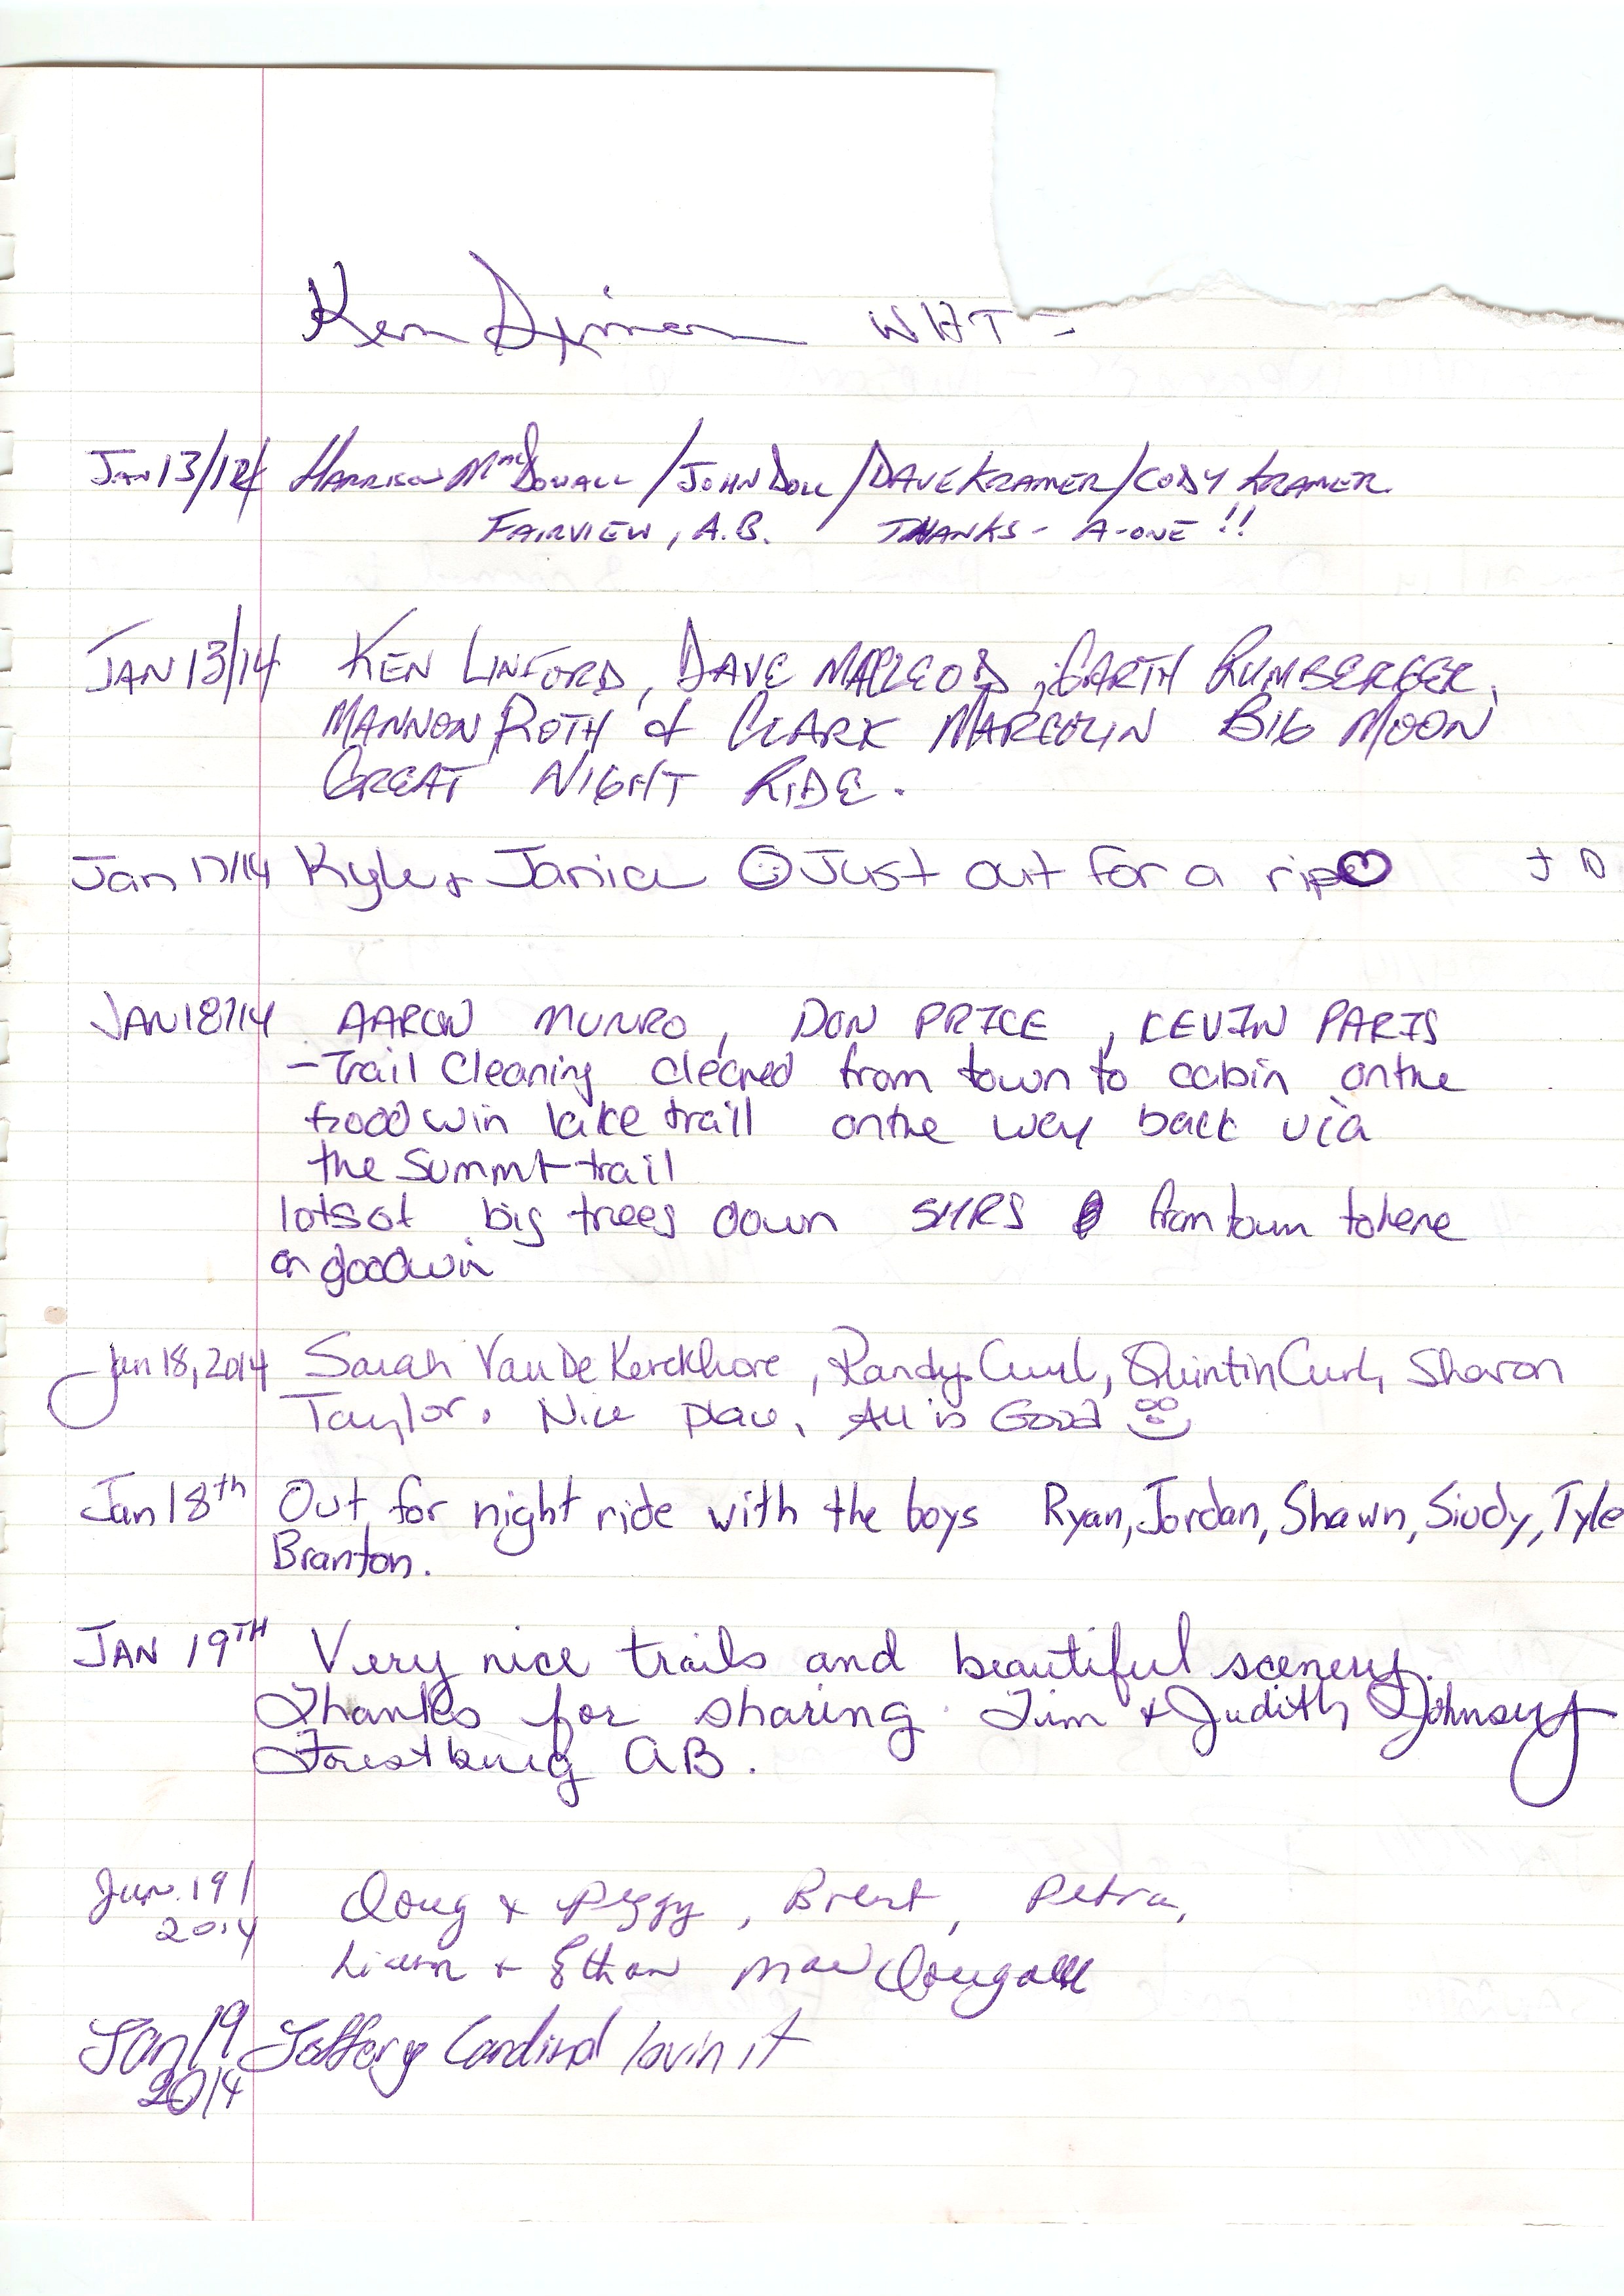 Ken
Jan 13/14 HARRISON MacDOUALL / JOHN DOLL / DAVE KRAMER / CODY KRAMER
FAIRVIEW, A.B. THANKS - A-ONE !!
JAN 13/14 KEN LINFORD, DAVE MACLEOD, GARTH RUMBERGER,
MANNON ROTH & CLARK MARCOLIN BIG MOON
GREAT NIGHT RIDE.
Jan 17/14 Kyle & Janice ☺ Just out for a rip ♡ J D
JAN 18/14 AARON MUNRO, DON PRICE, KEVIN PARIS
- Trail Cleaning cleared from town to cabin on the
goodwin lake trail on the way back via
the Summit trail
lots of big trees down 5HRS from town to here
on goodwin
Jan 18, 2014 Sarah VanDeKerckhove, Randy Curl, Quintin Curl, Sharon
Taylor. Nice place, All is Good ☺
Jan 18th Out for night ride with the boys Ryan, Jordan, Shawn, Siudy, Tyle
Branton.
JAN 19TH Very nice trails and beautiful scenery.
Thanks for sharing. Tim & Judith Johnson
Forestburg AB.
Jan. 19 /
2014 Doug & Peggy, Brent, Petra,
Liam & Ethan MacDougall
Jan 19 Jeffery Cardinal lovin it
2014